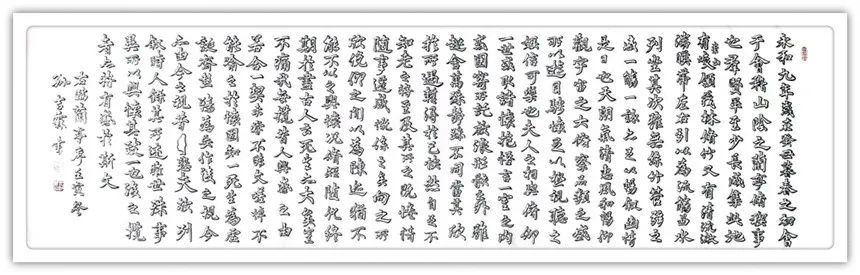 永和九年歲在癸丑暮春之初會
于會稽山陰之蘭亭脩稧事
也羣賢畢至少長咸集此地
有崇山峻領茂林脩竹又有清流激
湍暎帶左右引以為流觴曲水
列坐其次雖無絲竹管弦之
盛一觴一詠亦足以暢敘幽情
是日也天朗氣清惠風和暢仰
觀宇宙之大俯察品類之盛
所以遊目騁懷足以極視聽之
娛信可樂也夫人之相與俯仰
一世或取諸懷抱悟言一室之內
或因寄所託放浪形骸之外雖
趣舍萬殊靜躁不同當其欣
於所遇蹔得於己怏然自足不
知老之將至及其所之既惓情
隨事遷感慨係之矣向之所
欣俛仰之閒以為陳迹猶不
能不以之興懷況脩短隨化終
期於盡古人云死生亦大矣豈
不痛哉每攬昔人興感之由
若合一契未嘗不臨文嗟悼不
能喻之於懷固知一死生為虛
誕齊彭殤為妄作後之視今
亦由今之視昔悲夫故列
敘時人錄其所述雖世殊事
異所以興懷其致一也後之攬
者亦將有感於斯文
右臨蘭亭序壬寅冬
孫霖書